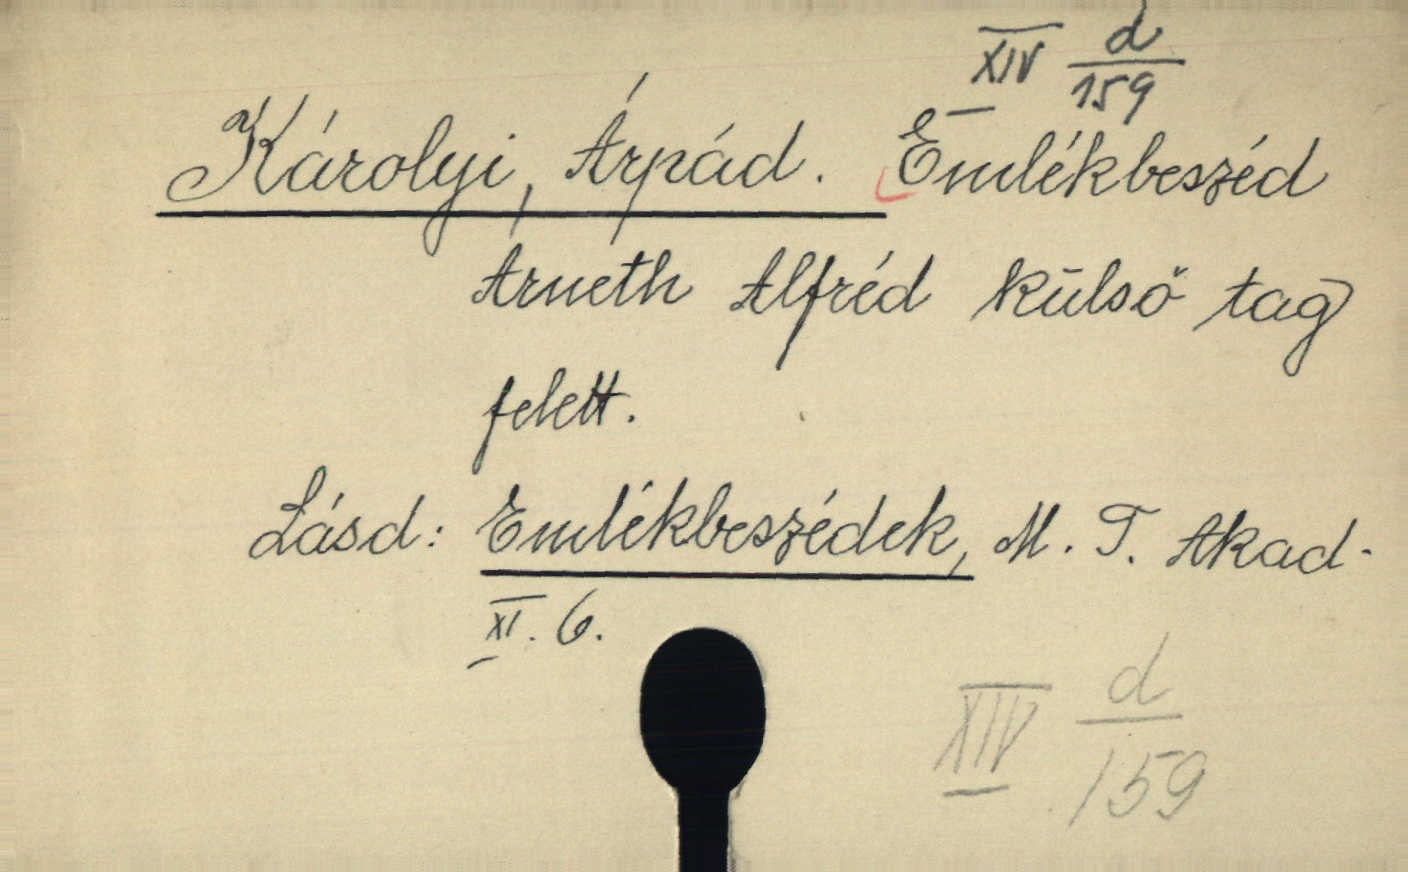 XIV d/159
Károlyi, Árpád. Emlékbeszéd
Arneth Alfréd külső tag
felett.
Lásd: Emlékbeszédek, M. T. Akad.
XI. 6.
XIV d/159